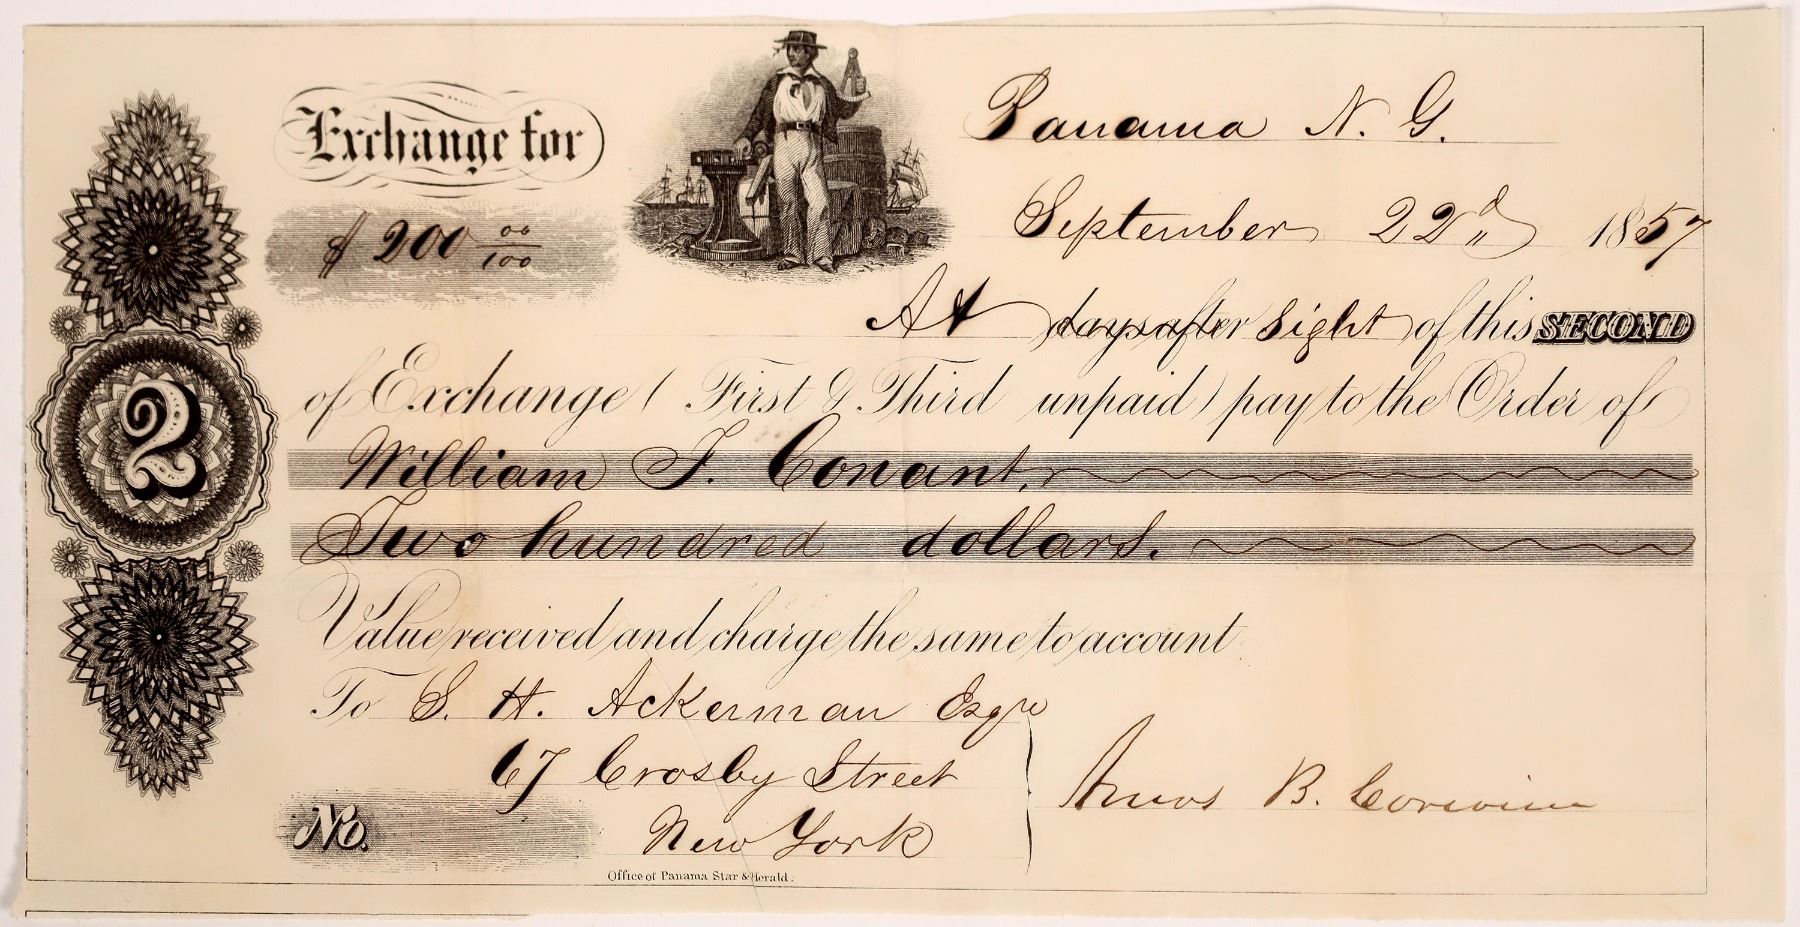 Exchange for
$ 200 00/100
Panama N. G.
September 22d 1857
At days after sight of this SECOND
of Exchange ( First & Third unpaid ) pay to the Order of
William F. Conant,
Two hundred dollars.
2
Value received and charge the same to account
To S. H. Ackerman Esqre
67 Crosby Street
New York
Amos B. Corwine
No.
Office of Panama Star & Herald.